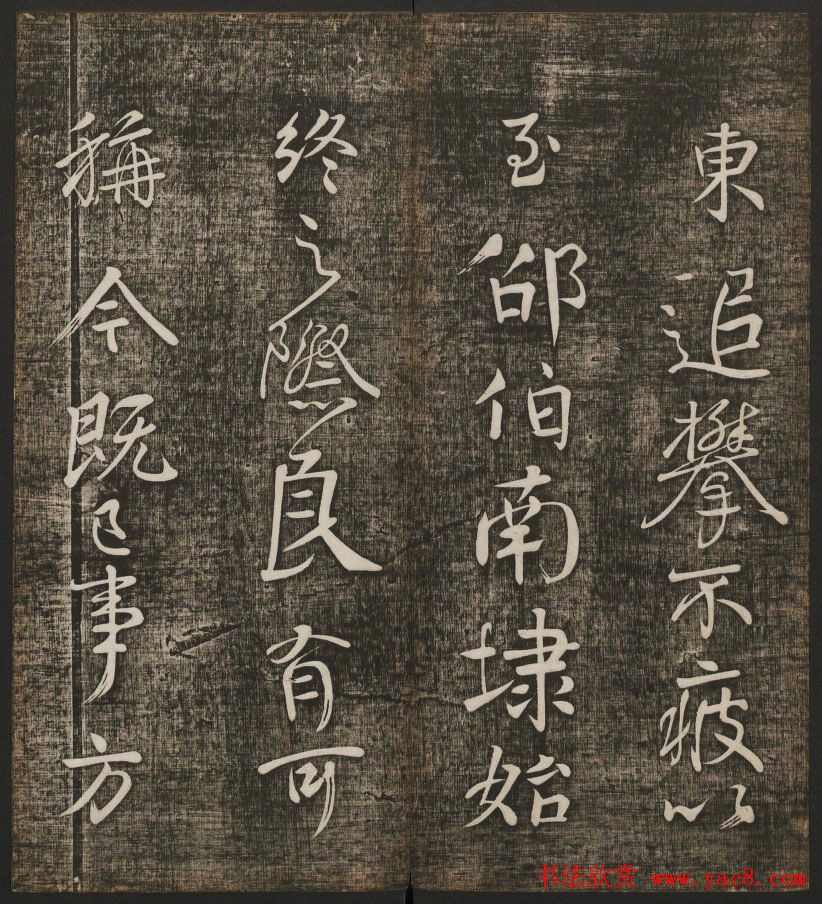 東追攀不疲以
至邵伯南埭始
終之際良有可
稱今既已事方
书法欣赏 www.yac8.com